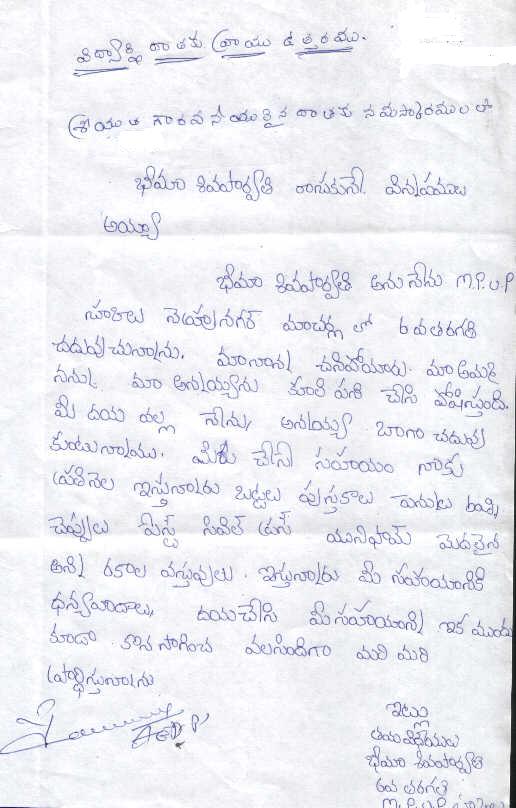 విద్యార్థి దాతకు వ్రాయు ఉత్తరము.
శ్రీయుత గౌరవనీయులైన దాతకు నమస్కారములతో
భీమా శివపార్వతి రాసుకునే విన్నపములు
అయ్యా
భీమా శివపార్వతి అను నేను M.P.U.P
స్కూలు నెహ్రూనగర్ మాచర్ల లో 6వ తరగతి
చదువుచున్నాను. మా నాన్న చనిపోయారు. మా అమ్మ
నన్ను మా అన్నయ్యను కూలి పని చేసి పోషిస్తుంది.
మీ దయ వల్ల నేను, అన్నయ్య బాగా చదువు
కుంటున్నాము. మీరు చేసే సహాయం నాకు
ప్రతినెల ఇస్తున్నారు బట్టలు పుస్తకాలు పెన్నులు
చెప్పులు పేస్ట్ సివిల్ డ్రస్ యునిఫామ్ మొదలైన
అన్ని రకాల వస్తువులు. ఇస్తున్నారు మీ సహాయానికి
ధన్యవాదాలు, దయచేసి మీ సహాయాన్ని ఇక ముందు
కూడా కొనసాగించ వలసిందిగా మరి మరి
ప్రార్థిస్తున్నాను
ఇట్లు
తమ విధేయులు
భీమా శివపార్వతి
6వ తరగతి
M.P.U.P స్కూలు